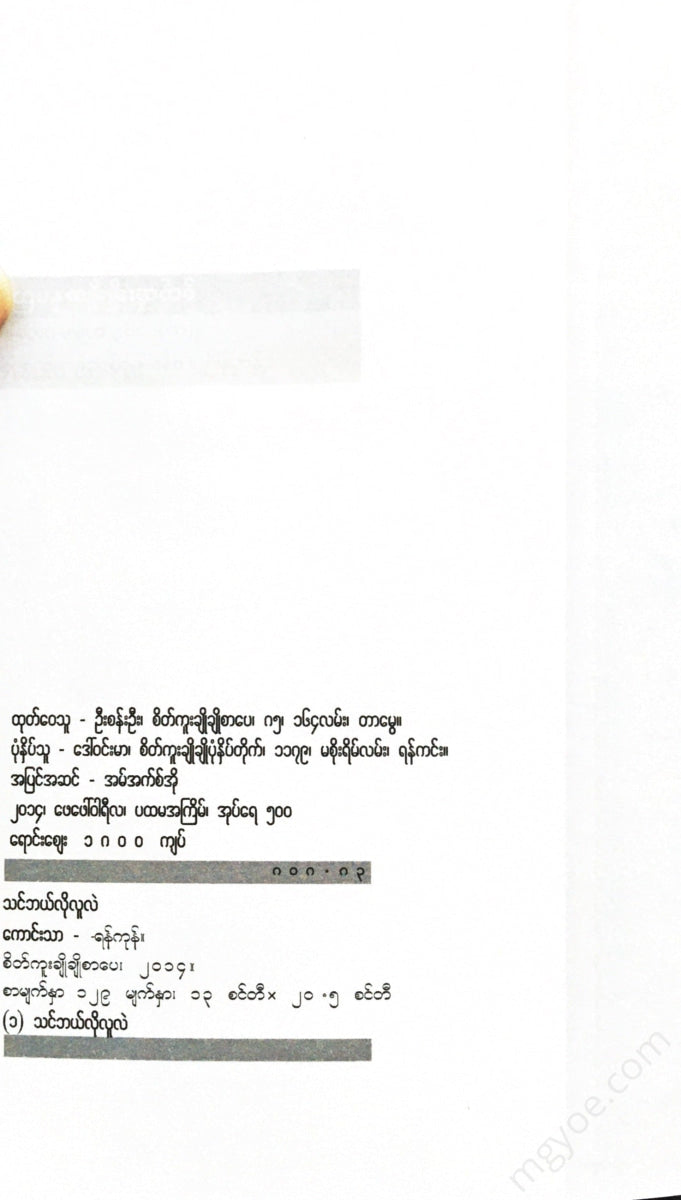 ထုတ်ဝေသူ - ဦးစန်းဦး၊ စိတ်ကူးချိုချိုစာပေ၊ ဂ၅၊ ၁၆၄လမ်း၊ တာမွေ။
ပုံနှိပ်သူ - ဒေါ်ဝင်းမာ၊ စိတ်ကူးချိုချိုပုံနှိပ်တိုက်၊ ၁၁၇၉၊ မစိုးရိမ်လမ်း၊ ရန်ကင်း။
အပြင်အဆင် - အမ်အက်စ်အို
၂၀၁၄၊ ဖေဖော်ဝါရီလ၊ ပထမအကြိမ်၊ အုပ်ရေ ၅၀၀
ရောင်းဈေး ၁ ၈ ၀ ၀ ကျပ်
၈ ၀ ၈ . ၈ ၃
သင်ဘယ်လိုလူလဲ
ကောင်းသာ - -ရန်ကုန်။
စိတ်ကူးချိုချိုစာပေ၊ ၂၀၁၄။
စာမျက်နှာ ၁၂၉ မျက်နှာ၊ ၁၃ စင်တီ× ၂၀ .၅ စင်တီ
(၁) သင်ဘယ်လိုလူလဲ
mgyoe.com